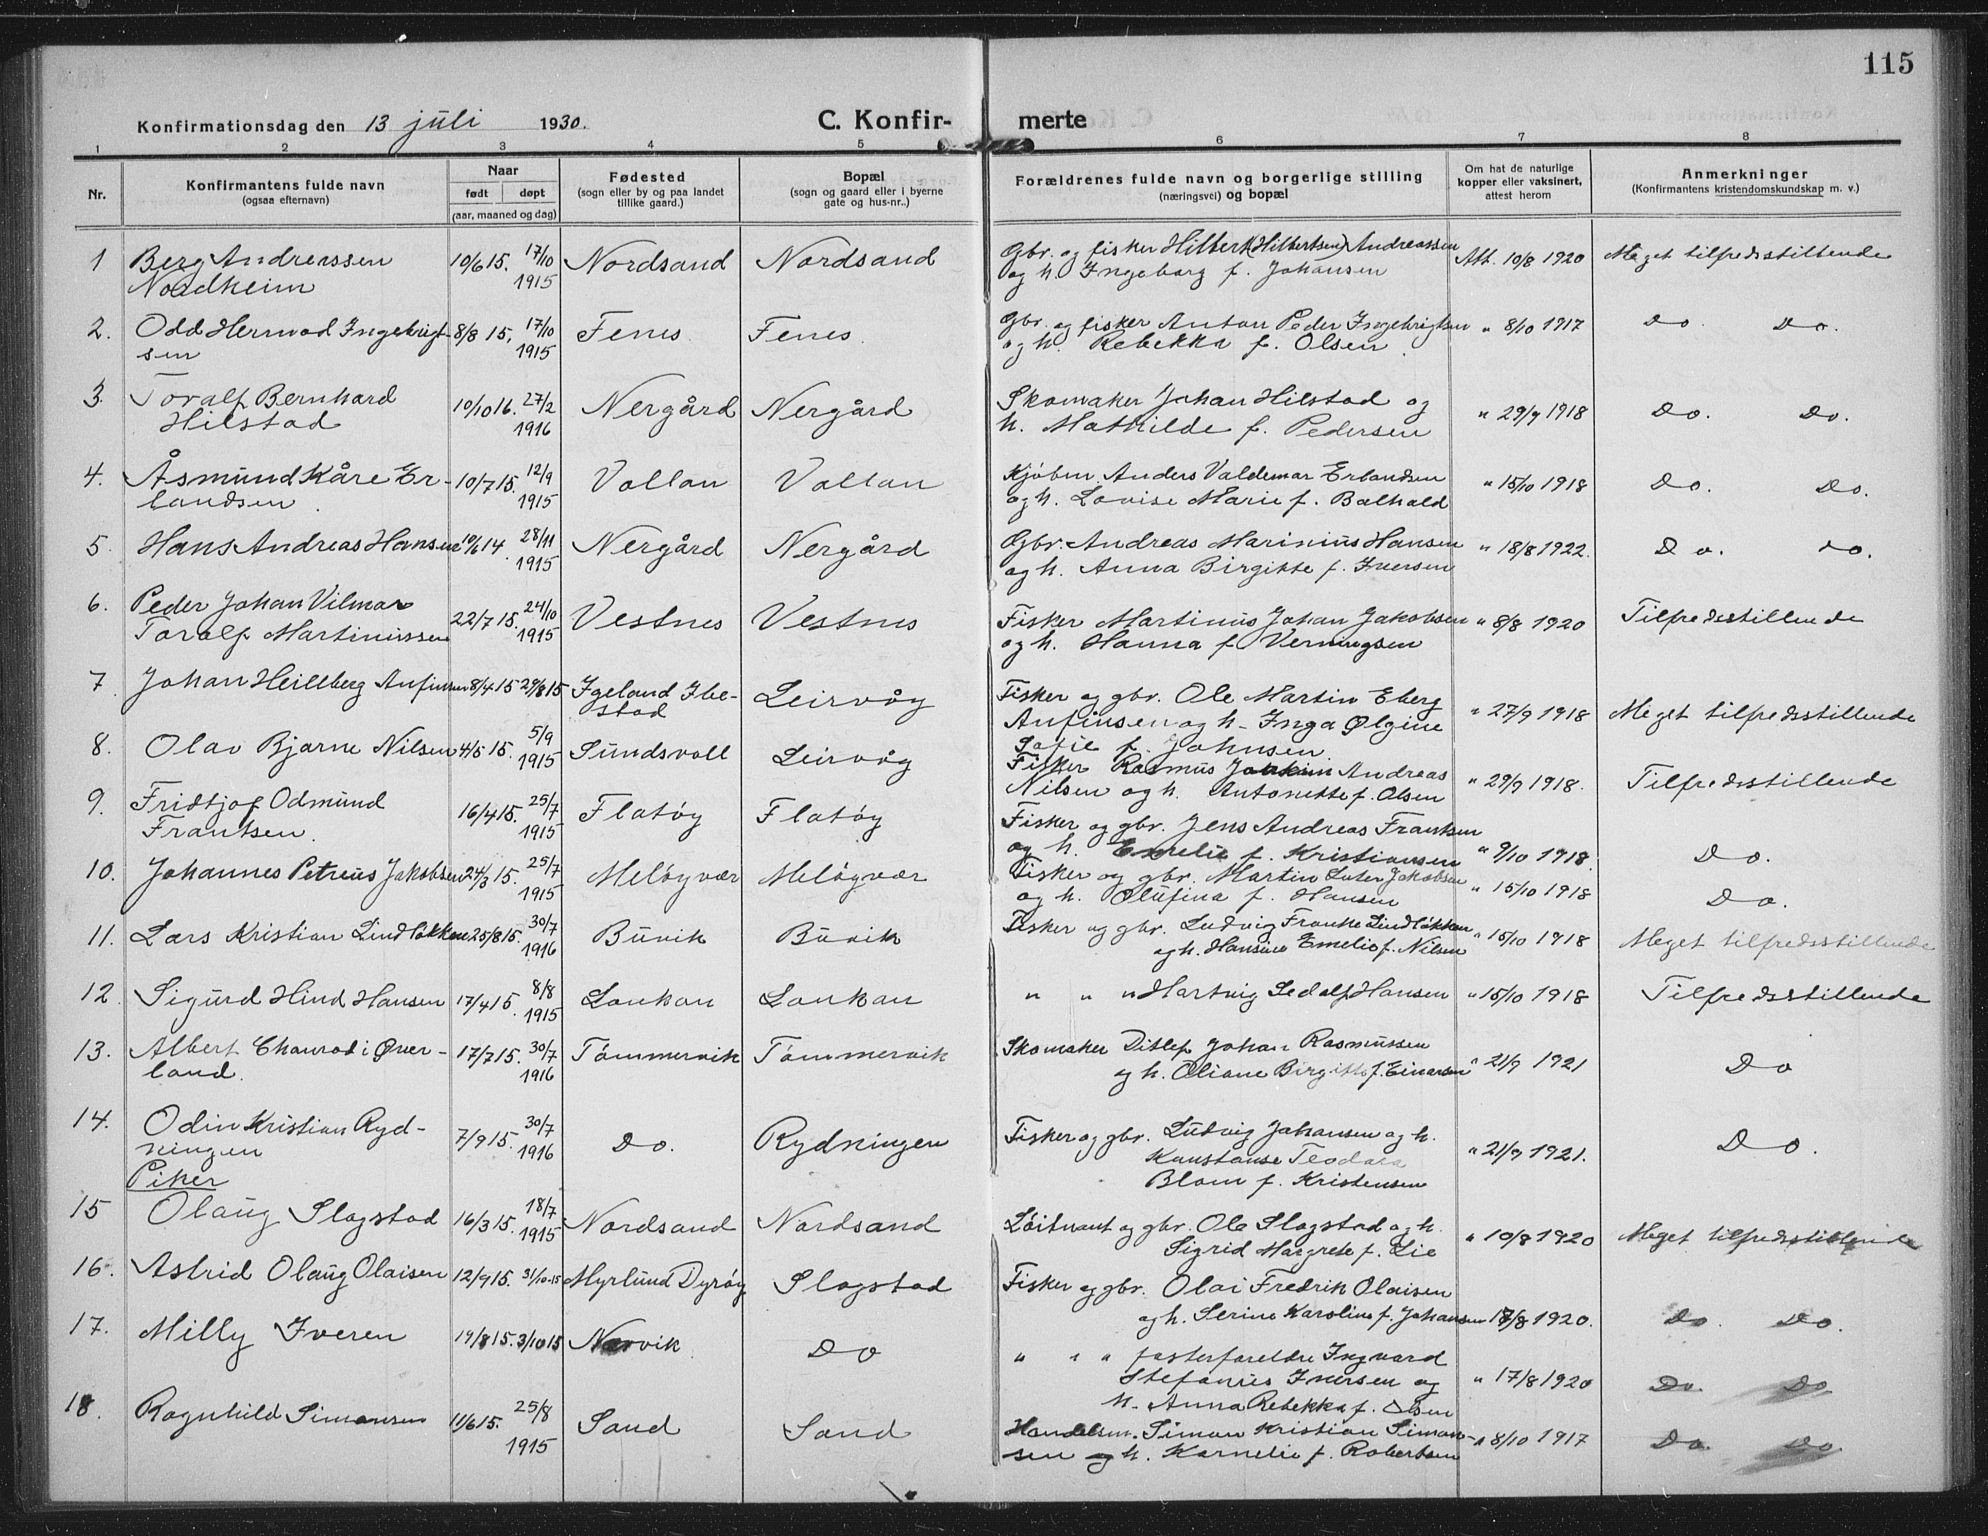 115
Konfirmationsdag den 13 juli 1930. C. Konfir- merte
1 2 3 4 5 6 7 8
Nr. Konfirmantens fulde navn (ogsaa efternavn) Naar født døpt (aar, maaned og dag) Fødested (sogn eller by og paa landet tillike gaard.) Bopæl (sogn og gaard eller i byerne gate og hus-nr..) Forældrenes fulde navn og borgerlige stilling (næringsvei) og bopæl Om hat de naturlige kopper eller vaksinert, attest herom Anmerkninger (Konfirmantens kristendomskundskap m. v.)
1 Berg Andreassen Nordheim 10/6 15. 17/10 1915 Nordsand Nordsand Gbr. og fisker Hilbert (Hilbertsen) Andreassen og h. Ingeborg f. Johansen Att. 10/8 1920 Meget tilfredsstillende
2. Odd Hermod Ingebrigtsen 8/8 15. 17/10 1915 Fenes Fenes Gbr. og fisker Anton Peder Ingebrigtsen og h. Rebekka f. Olsen " 8/10 1917 Do. Do.
3. Toralf Bernhard Hilstad 10/10 16. 27/2 1916 Nergård Nergård Skomaker Johan Hilstad og h. Mathilde f. Pedersen " 29/9 1918 Do. Do.
4. Åsmund Kåre Er- landsen 10/7 15. 12/9 1915 Vollan Vollan Kjøbm Anders Valdemar Erlandsen og h. Lovise Marie f. Balhald " 15/10 1918 Do. Do.
5. Hans Andreas Hansen 10/6 14. 28/11 1915 Nergård Nergård Gbr. Andreas Marinius Hansen og h. Anna Birgitte f. Iversen " 18/8 1922. Do. do.
6. Peder Johan Vilmar Toralf Martinussen 22/7 15. 24/10 1915 Vestnes Vestnes Fisker Martinus Johan Jakobsen og h. Hanna f. Verningsen " 8/8 1920 Tilfredsstillende
7. Johan Heillberg Anfinsen 8/4 15 29/8 15 Igeland Ibe- stad Leirvåg Fisker og gbr. Ole Martin Eberg Anfinsen og h. Inga Ølgine Sofie f. Johnsen " 27/9 1918 Meget tilfredsstillende
8. Olav Bjarne Nilsen 4/5 15. 5/9 1915 Sundsvoll Leirvåg Fisker Rasmus Joakim Andreas Nilsen og h. Antonette f. Olsen " 29/9 1918. Tilfredsstillende
9. Fridtjof Odmund Frantsen. 16/4 15. 25/7 1915 Flatøy Flatøy Fisker og gbr. Jens Andreas Frantsen og h. Emelie f. Kristiansen " 9/10 1918. Do.
10. Johannes Petreus Jakobsen 24/3 15. 25/7 1915 Meløyvær Meløyvær Fisker og gbr. Martin Luter Jakobsen og h. Olufina f. Hansen " 15/10 1918 Do.
11. Lars Kristian Lindløkken 25/8 15. 30/7 1916 Buvik Buvik Fisker og gbr. Ludvig Franke Lindløkken og h. Hansine Emelie f. Nilsen " 15/10 1918 Meget tilfredsstillende
12. Sigurd Hind Hansen 17/4 15. 8/8 1915 Lankan Lankan " " " Hartvig Hansen " 15/10 1918 Tilfredsstillende
13. Albert Øver- land. 17/7 15. 30/7 1916 Tømmervik Tømmervik Skomaker Ditlef Johan Rasmussen og h. Oliane Birgitte f. Einarsen " 21/9 1921 Do
14. Odin Kristian Ryd- ningen 7/9 15. 30/7 1916 Do. Rydningen Fisker og gbr. Ludvig Johansen og h. Konstanse Teodora Blom f. Kristensen " 21/9 1921. Do.
Piker
15 Olaug Slogstad 16/3 15. 18/7 1915 Nordsand Nordsand Løitnant og gbr. Ole Slogstad og h. Sigrid Margrete f. Lie " 10/8 1920 Meget tilfredsstillende
16. Astrid Olaug Olaisen 12/9 15. 31/10-15 Myrlund Dyrøy Slogstad Fisker og gbr. Olai Fredrik Olaisen og h. Serine Karoline f. Johansen 17/8 1920. Do. Do.
17. Milly Iveren 19/8 15. 3/10 15 Narvik Do " " " fosterforeldre Ingvard Stefanus Iversen og h. Anna Rebekka f. Olsen " 17/8 1920 Do. Do
18. Ragnhild Simonsen 11/6 15. 25/8 1915 Sand Sand Handelsm. Simon Kristian Simon- sen og h. Kornelie f. Robertsen " 8/10 1917 Do. Do